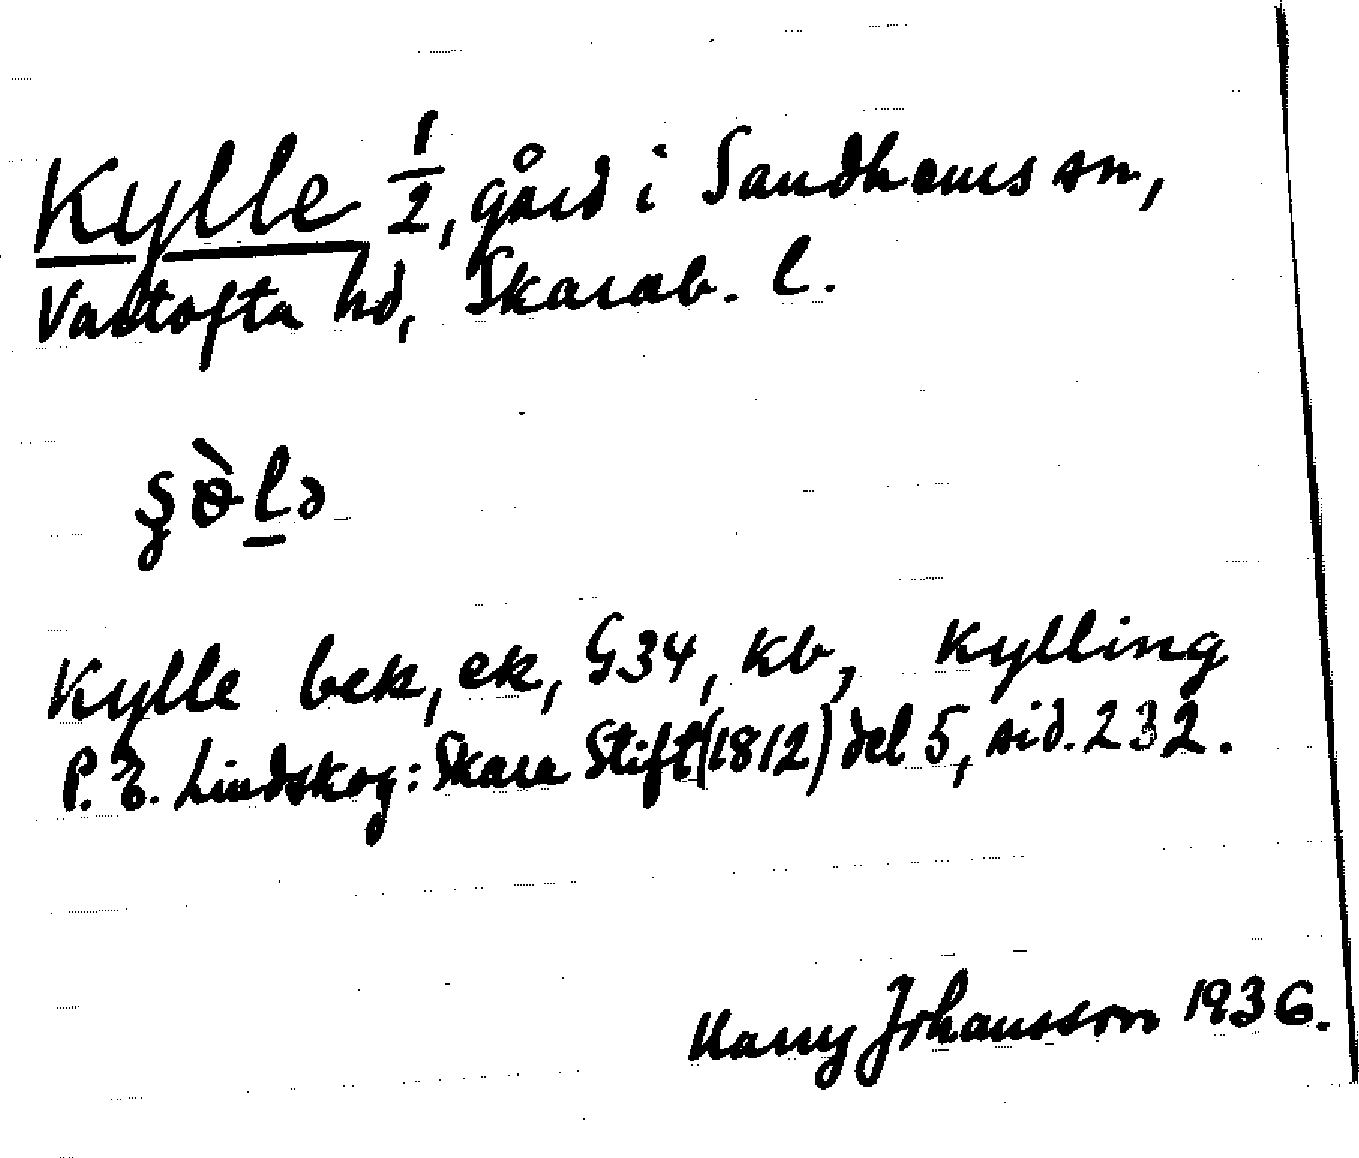 Kylle ½, gård i Sandhems sn,
Vartofta hd, Skarab. l.
Kylle bek, ek, G34, kb, Kylling
P. E. Lindskog: Skara Stift (1812) del 5, sid. 232.
Harry Johansson 1936.